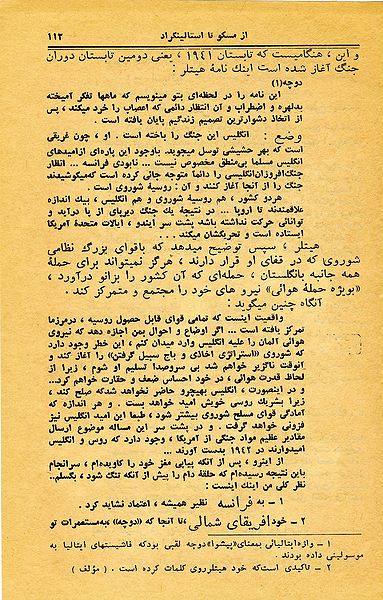 از مسکو تا استالینگراد ۱۱۲
و این ، هنگامیست که تابستان ۱۹۴۱ ، یعنی دومین تابستان دوران
جنگ آغاز شده است اینك نامهٔ هیتلر :
دوچه(۱)
این نامه را در لحظه‌ای بتو مینویسم که ماهها تفکر آمیخته
بدلهره و اضطراب و آن انتظار دائمی که اعصاب را خرد میکند ، پس
از اتخاذ دشوارترین تصمیم زندگیم پایان یافته است .
وضع : انگلیس این جنگ را باخته است . او ، چون غریقی
است که بهر حشیشی توسل میجوید. باوجود این پاره‌ای ازامیدهای
انگلیس مسلما بی‌منطق مخصوص نیست ... نابودی فرانسه ... انظار
جنگ‌افروزان‌انگلیسی را دائما متوجه جائی کرده است که‌میکوشیدند
جنگ را از آنجا آغاز کنند و آن : روسیهٔ شوروی است .
هردو کشور ، هم روسیهٔ شوروی و هم انگلیس ، بیك اندازه
علاقمندند تا اروپا ... در نتیجهٔ یك جنگ دیرپای از پا درآید و
توانائی حرکت نداشته باشد پشت سر ایندو ، ایالات متحدهٔ آمریکا
ایستاده است و تحریکشان میکند ...
هیتلر ، سپس توضیح میدهد که باقوای بزرگ نظامی
شوروی که در قفای او قرار دارند ، هرگز نمیتواند برای حملهٔ
همه جانبه بانگلستان ، حمله‌ای که آن کشور را بزانو درآورد ،
«بویژه حملهٔ هوائی» نیرو های خود را مجتمع و متمرکز کند .
آنگاه چنین میگوید :
واقعیت اینست که تمامی قوای قابل حصول روسیه ، درمرزما
تمرکز یافته است ... اگر اوضاع و احوال بمن اجازه دهد که نیروی
هوائی آلمان را علیه انگلیس وارد میدان کنم ، این خطر وجود دارد
که شوروی «استراتژی اخاذی و باج سبیل گرفتن» را آغاز کند و
آنوقت ناگزیر خواهم شد بی سروصدا تسلیم او شوم ، زیرا از
لحاظ قدرت هوائی ، در خود احساس ضعف و حقارت خواهم کرد...
و در اینصورت ، انگلیس بهیچرو حاضر نخواهد شدکه صلح کند ،
زیرا بشریك روسی خویش امید خواهد بست . و هر اندازه که
آمادگی قوای مسلح شوروی بیشتر شود ، طبعا این امید انگلیس نیز
فزونی خواهد گرفت . و در پشت سر این مساله موضوع ارسال
مقادیر عظیم مواد جنگی از آمریکا ، وجود دارد که روس و انگلیس
امیدوارند در ۱۹۴۲ بدست آورند ...
از اینرو ، پس از آنکه پیاپی مغز خود را کاویده‌ام ، سرانجام
باین نتیجه رسیده‌ام که حلقهٔ دام را پیش از آنکه تنگ شود ، بگسلم..
نظر کلی من اینك اینست :
۱ – به فرانسه نظیر همیشه ، اعتماد نشاید کرد .
۲ – خود افریقای شمالی ،تا آنجا که («دوچه»)به‌مستعمرات تو
۱ – واژه‌ایتالیائی بمعنای«پیشوا»دوچه لقبی بودکه فاشیستهای ایتالیا به
موسولینی داده بودند .
۲ – تاکیدی است‌که خود هیتلرروی کلمات کرده است . ( مؤلف )